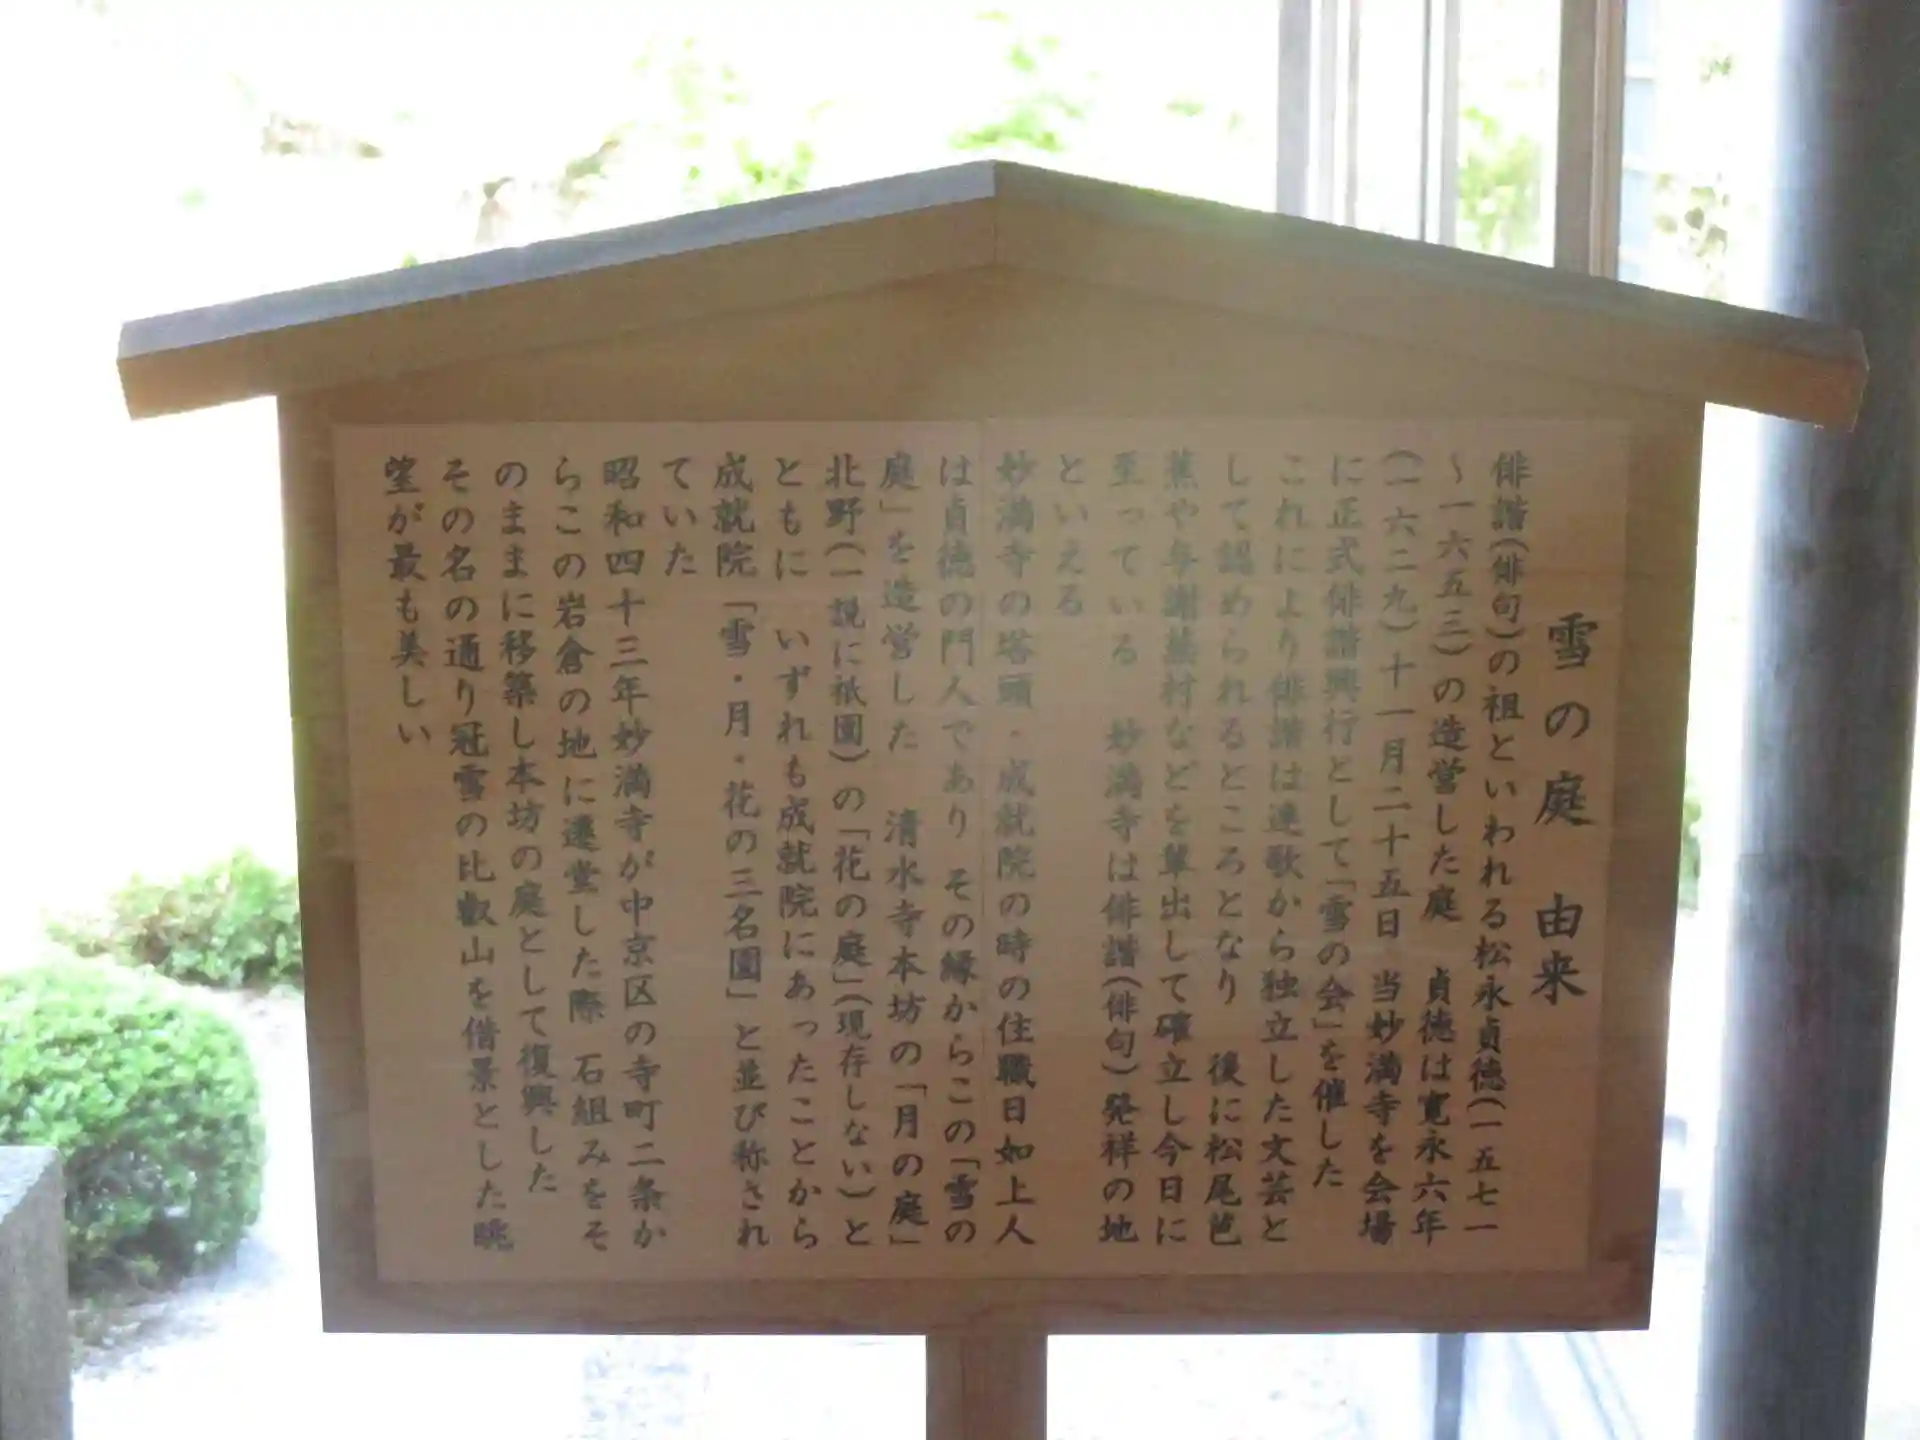 雪の庭　由来
俳諧(俳句)の祖といわれる松永貞徳(一五七一
～一六五三)の造営した庭　貞徳は寛永六年
(一六二九)十一月二十五日　当妙満寺を会場
に正式俳諧興行として「雪の会」を催した
これにより俳諧は連歌から独立した文芸と
して認められるところとなり　後に松尾芭
蕉や与謝蕪村などを輩出して確立し今日に
至っている　妙満寺は俳諧(俳句)発祥の地
といえる
妙満寺の塔頭・成就院の時の住職日如上人
は貞徳の門人であり　その縁からこの「雪の
庭」を造営した　清水寺本坊の「月の庭」
北野(一説に祇園)の「花の庭」(現存しない)と
ともに　いずれも成就院にあったことから
成就院「雪・月・花の三名園」と並び称され
ていた
昭和四十三年妙満寺が中京区の寺町二条か
らこの岩倉の地に遷堂した際　石組みをそ
のままに移築し本坊の庭として復興した
その名の通り冠雪の比叡山を借景とした眺
望が最も美しい